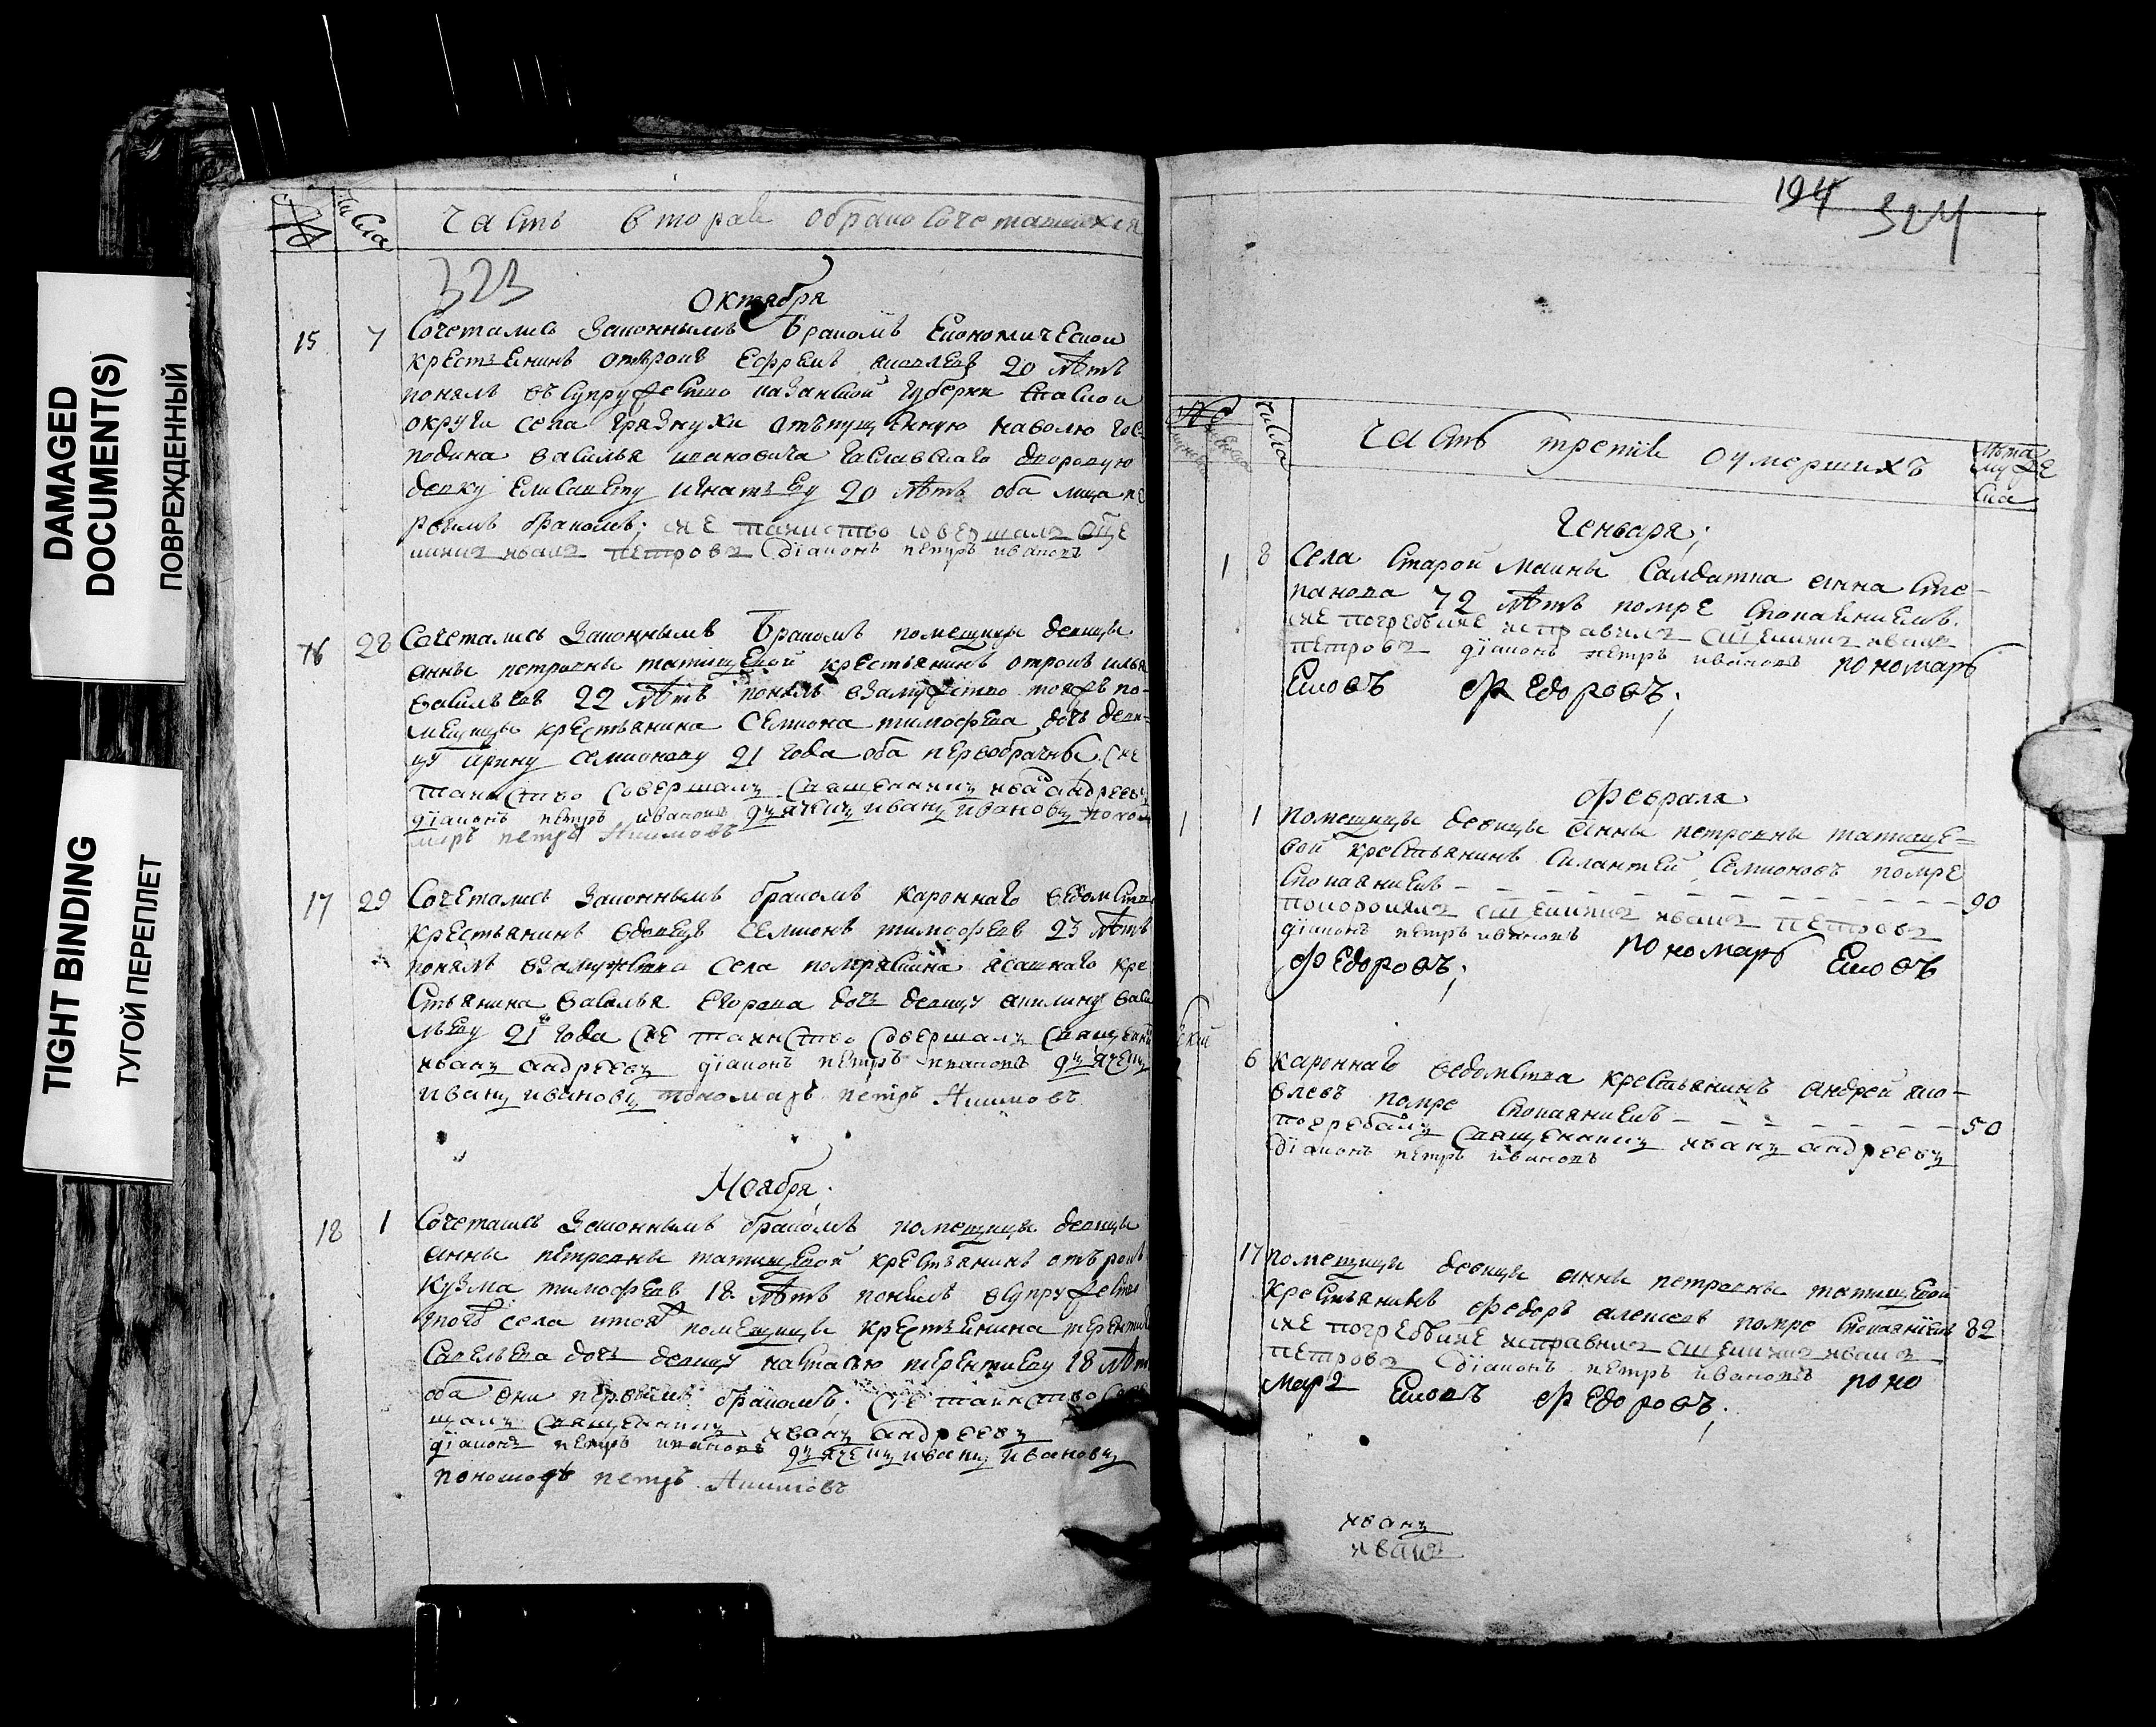 DAMAGED
DOCUMENT(S)
ПОВРЕЖДЕННЫЙ
TIGHT BINDING
ТУГОЙ ПЕРЕПЛЕТ
№ Числа
Часть вторая о бракосочетавшихся
323
Октября
15 7 Сочетались Законнымъ Бракомъ Економической
крестьянинъ отрокъ Ефремъ яковлевъ 20 лѣтъ
понялъ въ супружество казанской губерни спаской
округи села грязнухи отъпущенную наволю гос-
подина василья ивановича дворовую
девку елисавету игнатьеву 20 лѣтъ оба лица пе
рвымъ бракомъ; сие таинство совершалъ
иванъ петровъ дїаконъ петръ ивановъ
16 28 Сочетались Законнымъ Бракомъ помещицы девицы
анны петровны татищевой крестьянинъ отрокъ илья
васильевъ 22 лѣтъ понялъ взамужство тояжъ по-
мещицы крестьянина семиона тимофеева дочь деви-
цу ирину семионову 21 года оба первобрачны сие
таинство совершалъ священникъ иванъ андреевъ
дїаконъ петръ ивановъ дьячекъ иванъ ивановъ поно
марь петръ Акимовъ
17 29 Сочетались Законнымъ бракомъ кароннаго ведомства
крестьянинъ вдовецъ семионъ тимофеевъ 23 лѣтъ
понялъ взамужство села помряскина ясашнаго кре
стьянина василья егорова дочь девицу акилину васи
льеву 21 года сие таинство совершалъ священникъ
иванъ андреевъ дїаконъ петръ ивановъ дьячекъ
иванъ ивановъ пономарь петръ Акимовъ
Ноября;
18 1 Сочетались Законнымъ бракомъ помещицы девицы
анны петровны татищевой крестьянинъ отърокъ
кузма тимофеевъ 18 лѣтъ понялъ всупружество
тогожъ села итоя помещицы крестьянина терентия
савельева дочь девицу настасью терентиеву 18 лѣтъ
оба они первымъ бракомъ; сие таинство совер
шалъ священникъ иванъ андреевъ
дїаконъ петръ ивановъ дьячекъ иванъ ивановъ
пономарь петръ Акимовъ
194 324
№ Числа
Часть третия о умершихъ
лѣта
муже
ска
Генваря;
1 8 Села Старой Маины Салдатка анна Сте-
панова 72 лѣтъ помре спокаяниемъ.
сие погребение исправилъ иванъ
петровъ дїаконъ петръ ивановъ пономарь
Ековъ федоровъ;
февраля
1 1 помещицы девицы анны петровны татище-
вой крестьянинъ Силантей Семионовъ помре
спокаяниемъ - - - - - - - - - 90
похоронялъ иванъ петровъ
дїаконъ петръ ивановъ пономарь Ековъ
федоровъ;
6 кароннаго ведомства крестьянинъ андрей яко-
влевъ помре спокаяниемъ - - - - - - 50
погребалъ священникъ иванъ андреевъ
дїаконъ петръ ивановъ
17 помещицы девицы анны петровны татищевой
крестьянинъ федоръ алексеевъ помре спокаяниемъ 82
сие погребение исправилъ иванъ
петровъ дїаконъ петръ ивановъ поно
марь Ековъ федоровъ;
иванъ
иванъ